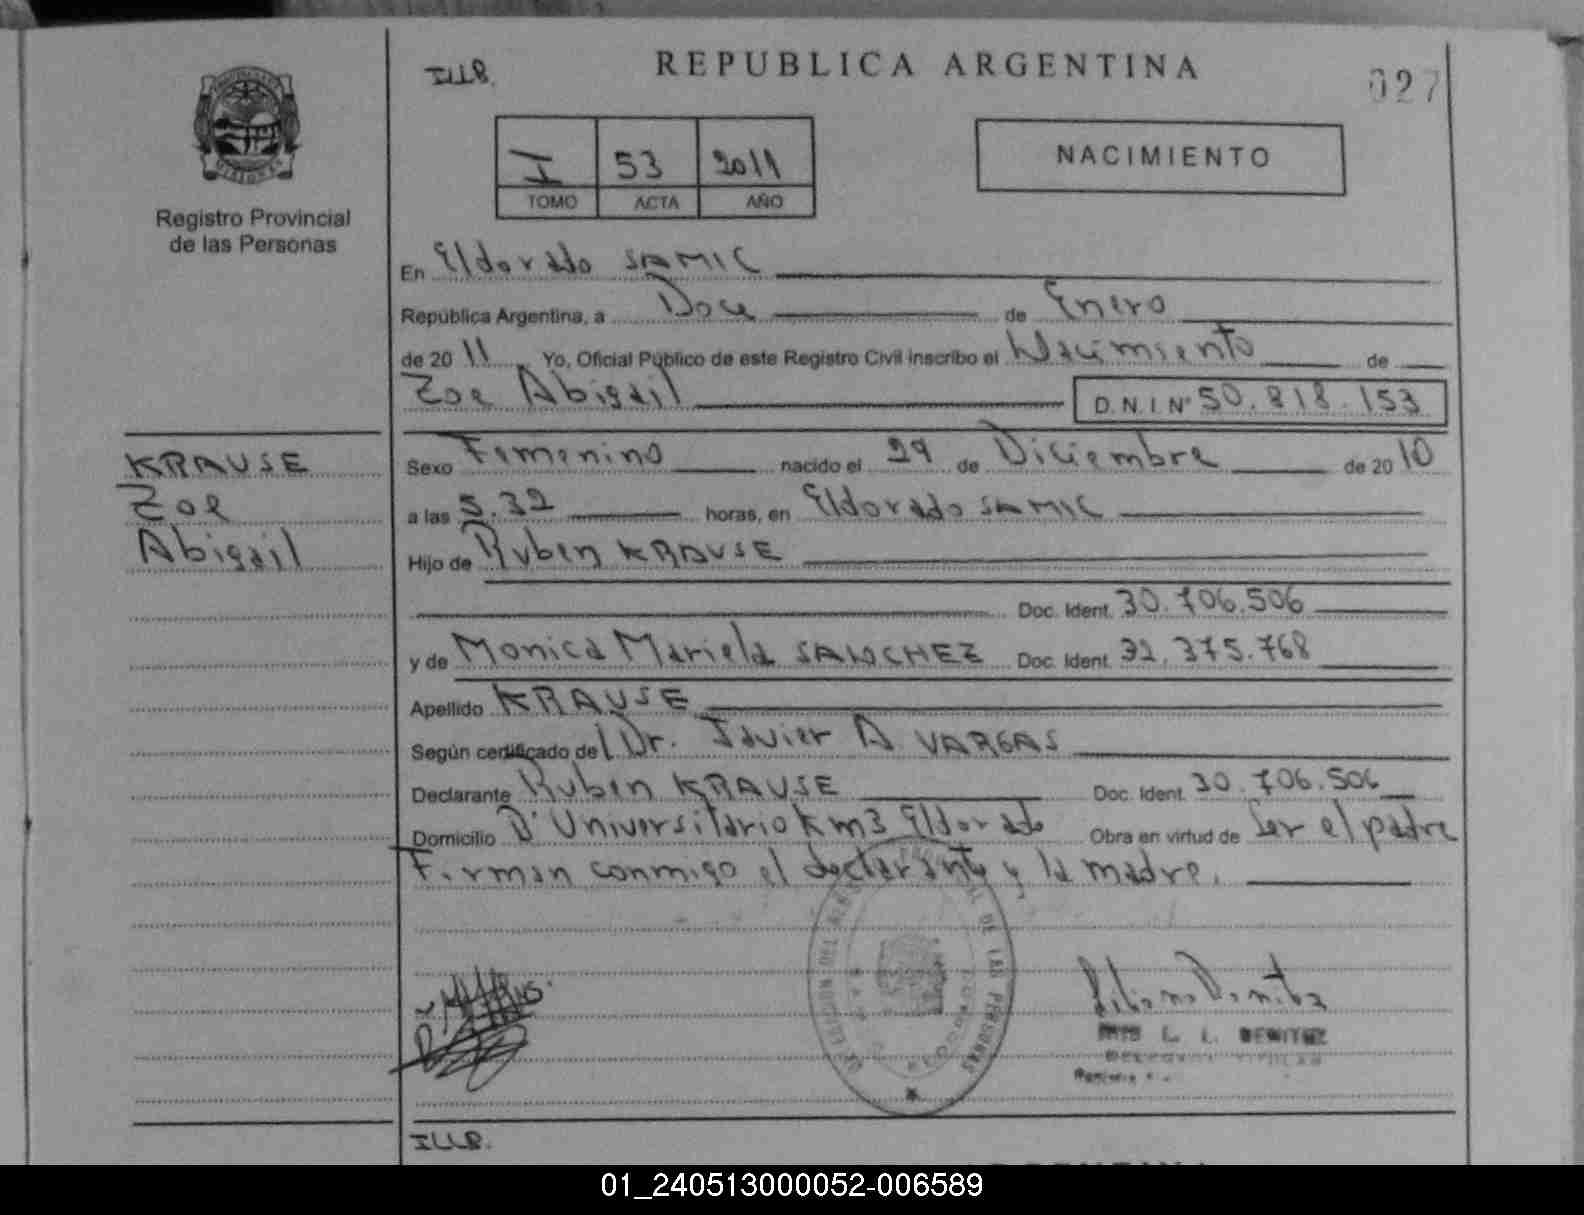 ILLB.
REPUBLICA ARGENTINA
027
I 53 2011
TOMO ACTA AÑO
NACIMIENTO
MISIONES
Registro Provincial
de las Personas
En Eldorado SAMIC
República Argentina, a Doce de Enero
de 20 11 Yo, Oficial Público de este Registro Civil inscribo el Nacimiento de
Zoe Abigail D.N.I. Nº 50.818.153
KRAUSE
Zoe
Abigail
Sexo Femenino nacido el 29 de Diciembre de 20 10
a las 5.32 horas, en Eldorado SAMIC
Hijo de Ruben KRAUSE
Doc. Ident. 30.706.506
y de Monica Mariela SANCHEZ Doc. Ident. 32.375.768
Apellido KRAUSE
Según certificado del Dr. Javier A VARGAS
Declarante Ruben KRAUSE Doc. Ident. 30.706.506
Domicilio Bº Universitario Km3 Eldorado Obra en virtud de Ser el padre
Firman conmigo el declarante y la madre.
DE LAS PERSONAS
ELDORADO
L. I. BENITEZ
TITULAR
ILLB.
01_240513000052-006589